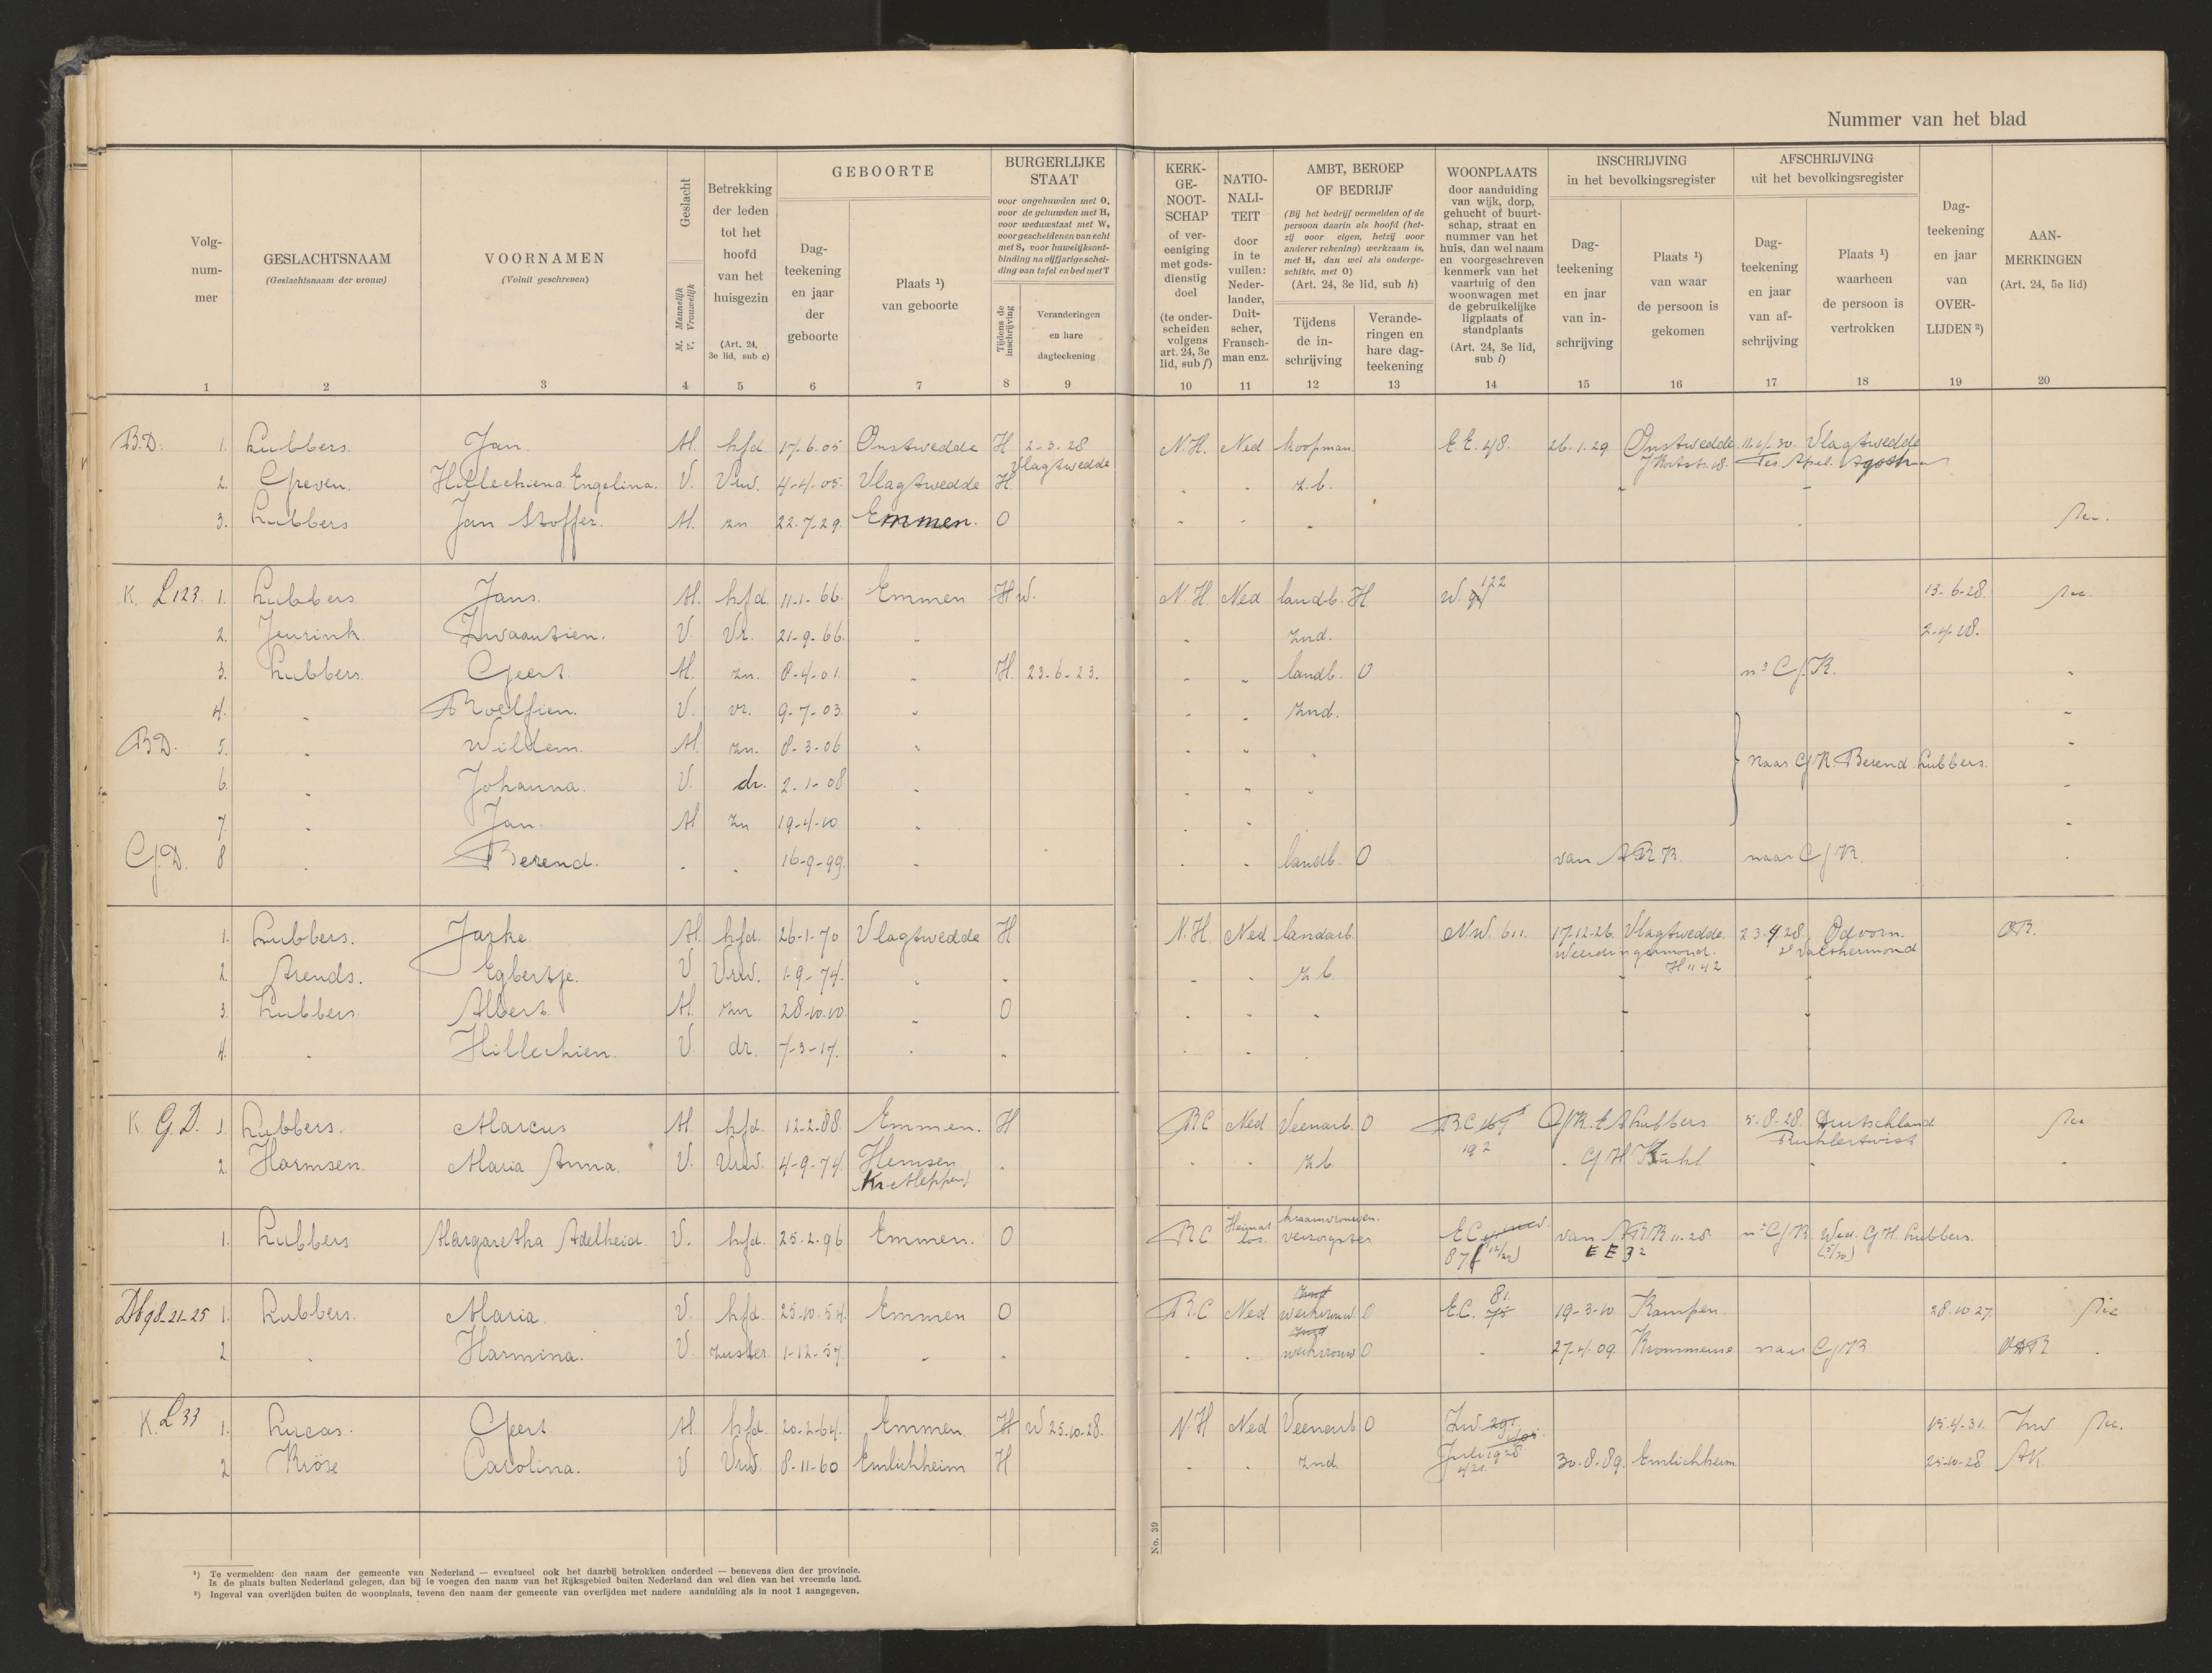 Nummer van het blad
Volg-
num-
mer
1
GESLACHTSNAAM
(Geslachtsnaam der vrouw)
2
VOORNAMEN
(Voluit geschreven)
3
Geslacht
M. Mannelijk
V. Vrouwelijk
4
Betrekking
der leden
tot het
hoofd
van het
huisgezin
(Art. 24,
3e lid, sub c)
5
GEBOORTE
Dag-
teekening
en jaar
der
geboorte
6
Plaats ¹)
van geboorte
7
BURGERLIJKE
STAAT
voor ongehuwden met O,
voor de gehuwden met H,
voor weduwstaat met W,
voor gescheidenen van echt
met S, voor huwelijksont-
binding na vijfjarige schei-
ding van tafel en bed met T
Tijdens de
inschrijving
8
Veranderingen
en hare
dagteekening
9
KERK-
GE-
NOOT-
SCHAP
of ver-
eeniging
met gods-
dienstig
doel
(te onder-
scheiden
volgens
art. 24, 3e
lid, sub f)
10
NATIO-
NALI-
TEIT
door
in te
vullen:
Neder-
lander,
Duit-
scher,
Fransch-
man enz.
11
AMBT, BEROEP
OF BEDRIJF
(Bij het bedrijf vermelden of de
persoon daarin als hoofd (het-
zij voor eigen, hetzij voor
anderer rekening) werkzaam is,
met H, dan wel als onderge-
schikte, met O)
(Art. 24, 3e lid, sub h)
Tijdens
de in-
schrijving
12
Verande-
ringen en
hare dag-
teekening
13
WOONPLAATS
door aanduiding
van wijk, dorp,
gehucht of buurt-
schap, straat en
nummer van het
huis, dan wel naam
en voorgeschreven
kenmerk van het
vaartuig of den
woonwagen met
de gebruikelijke
ligplaats of
standplaats
(Art. 24, 3e lid,
sub i)
14
INSCHRIJVING
in het bevolkingsregister
Dag-
teekening
en jaar
van in-
schrijving
15
Plaats ¹)
van waar
de persoon is
gekomen
16
AFSCHRIJVING
uit het bevolkingsregister
Dag-
teekening
en jaar
van af-
schrijving
17
Plaats ¹)
waarheen
de persoon is
vertrokken
18
Dag-
teekening
en jaar
van
OVER-
LIJDEN ²)
19
AAN-
MERKINGEN
(Art. 24, 5e lid)
20
B.D. 1. Lubbers. Jan. M. hfd. 17.6.05 Onstwedde H 2-3-28 N.H. Ned koopman. E.E. 48. 26-1-29 Onstwedde Vlagtwedde
Vlagtwedde Ter Apel.
2. Greven. Hillechiena Engelina. V. Vrw. 4-4-05. Vlagtwedde H. " " z.b.
3. Lubbers Jan Stoffer. M. zn 22.7-29. Emmen. O " " "
K. L 123. 1. Lubbers Jans. M. hfd. 11-1-66. Emmen H W. N.H. Ned landb. H. W. 122 13-6-28.
2. Jeurink. Zwaantien. V. Vr. 21-9-66. " " znd. 2-4-28.
3. Lubbers Geert. M. zn. 8-4-01. " H. 23-6-23. " " landb. O nr G.K. "
4. " Roelfien. V. vr. 9-7-03. " " " znd. "
B.D. 5. " Willem. M. zn. 8-3-06 " " " " naar G.K. Berend Lubbers. "
6. " Johanna. V. dr. 2-1-08 " " " " "
7. " Jan. M zn 19-4-10 " " " "
G.D. 8 " Berend. " " 16-9-99. " " " landb. O van A.R.K. naar G.K. "
1. Lubbers. Jaske. M. hfd. 26-1-70 Vlagtwedde H N.H. Ned landarb. N.W. 611. 17-12-26. Vlagtwedde. 23-9 28. Odoorn.
Weerdingermond. Valthermond
H" 42
2. Arends. Egbertje. V Vrw. 1-9-74. " " " " z.b. " "
3. Lubbers Albert. M. zn 28-10-10. " O " " " " "
4. " Hillechien. V dr. 7-3-17. " " " " "
K. G.D. 1. Lubbers. Marcus M. hfd. 12-2-88. Emmen. H R.C Ned Veenarb. O 5-8-28. Deutschland
192 Ruhlertwist
2. Harmsen. Maria Anna. V. Vrw. 4-9-74. Hemsen " " " z.b. " G H Kuhl " "
Kr. Meppen)
1. Lubbers Margaretha Adelheid. V. hfd. 25-2-96 Emmen. O R.C Heimat
los. kraamvrouwen.
verzorgster E.C. van A.R.K. 11-28. nr G.K. Wed. G.H. Lubbers.
E E 32
1. Lubbers. Maria. V. hfd. 25-10-54. Emmen O R.C Ned werkvrouw. O E.C. 81. 19-3-10 Kampen. 28.10 27.
2 " Harmina. V zuster. 1-12-57. " " " " werkvrouw O " 27-4-09. Krommenie naar G.K
K. L 33 1. Lucas. Geert. M. hfd. 20-2-64. Emmen. H W 25-10-28. N.H Ned Veenarb O Zw. 291. 15-4-31. Zw
2 Kröse Carolina. V Vrw. 8-11-60 Emlichheim H " " znd. 30-8-89. Emlichheim 25-10-28 AK.
No. 39
¹) Te vermelden: den naam der gemeente van Nederland — eventueel ook het daarbij betrokken onderdeel — benevens dien der provincie.
Is de plaats buiten Nederland gelegen, dan bij te voegen den naam van het Rijksgebied buiten Nederland dan wel dien van het vreemde land.
²) Ingeval van overlijden buiten de woonplaats, tevens den naam der gemeente van overlijden met nadere aanduiding als in noot 1 aangegeven.